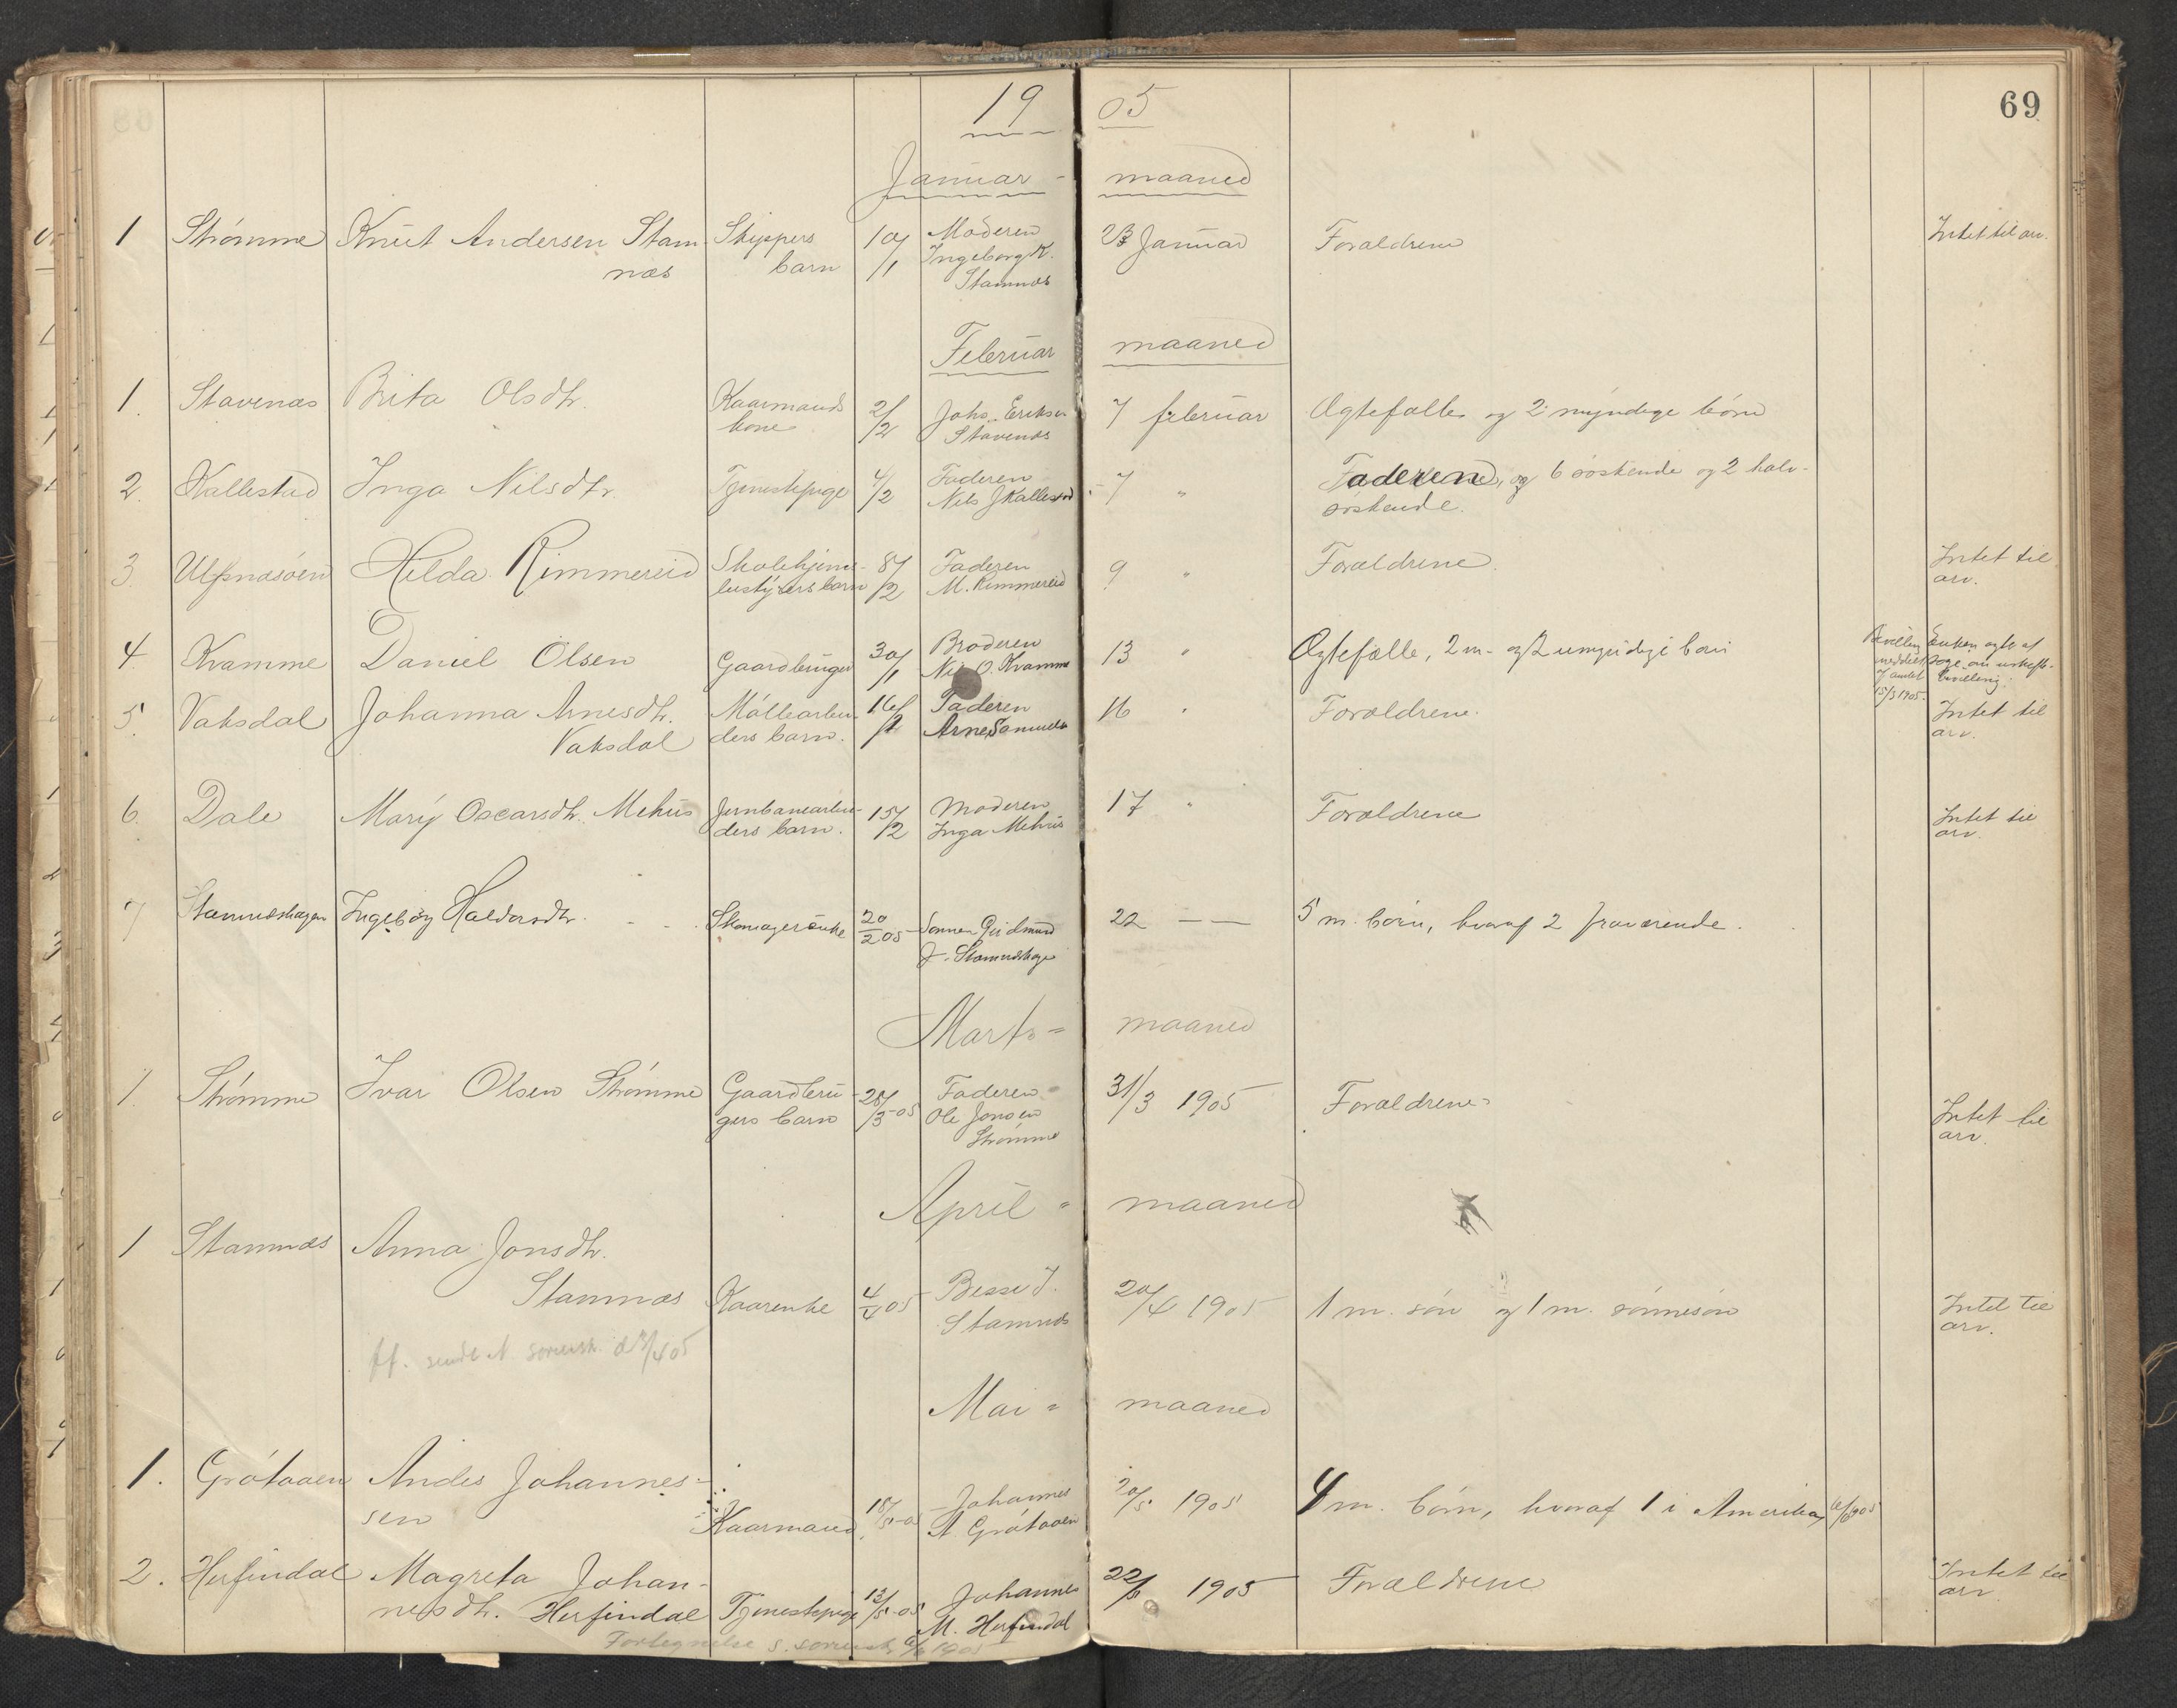 69
19 05
Januar - maaned
1 Strømme Knut Andersen Stam- Skippers 10/1 Moderen 23 Januar Forældrene Intet til arv.
næs barn Ingeborg K.
Stamnæs
Februar maaned
1. Stavenæs Brita Olsdtr. Kaarmands 2/2 Johs. Eriksen 7 februar Ægtefælle og 2 myndige børn
kone Stavenæs
2. Kallestad Inga Nilsdtr. Tjenestepige 4/2 Faderen 7 " Faderen, og 6 søskende og 2 halv-
Nils J Kallestad søskende.
3 Ulfsnæsøen Hilda Rimmereid Skolehjems- 8/2 Faderen 9 " Forældrene. Intet til
bestyrers barn M. Rimmereid arv.
4 Kvamme Daniel Olsen Gaardbruger 30/1 Broderen 13 " Ægtefælle, 2 m. og 2 umyndige børn Bevilling Enken agter at
Nils O. Kvamme meddelt søge om uskift-
af amtet bevilling.
15/3 1905.
5. Vaksdal Johanna Arnesdtr. Møllearbei- 16/2 Faderen 16 " Forældrene. Intet til
Vaksdal ders barn. Arne Samuels arv.
6. Dale Mary Oscarsdtr. Mehus Jernbanearbei- 15/2 Moderen 17 " Forældrene Intet til
ders barn. Inga Mehus arv.
7 Stamnæshagen Ingebørg Haldorsdtr. Skomagerenke 20/2 05 Sønnen Gudmund 22 — — 5 m. børn, hvoraf 2 fraværende.
J. Stamnæshage
Marts = maaned
1. Strømme Ivar Olsen Strømme Gaardbru- 28/3-05 Faderen 31/3 1905 Forældrene Intet til
gers barn Ole Jonsen arv.
Strømme
April = maaned
1 Stamnæs Anna Jonsdtr.
Stamnæs Kaarenke 4/4 05 Besse J. 20/4 1905 1 m. søn og 1 m. sønnesøn Intet til
Stamnæs arv.
ff. sendt sorensk.
Mai = maaned
1. Grøtaaen Andes Johannes-
sen Kaarmand 15/5-05 Johannes 20/5 1905 4 m. børn, hvoraf 1 i Amerika
A Grøtaaen
2. Herfindal Magreta Johan-
nesdtr. Herfindal Tjenestepige 12/5-05 Johannes 22/5 1905 Forældrene Intet til
M. Herfindal arv.
Fortegnelse s. sorensk. 1905